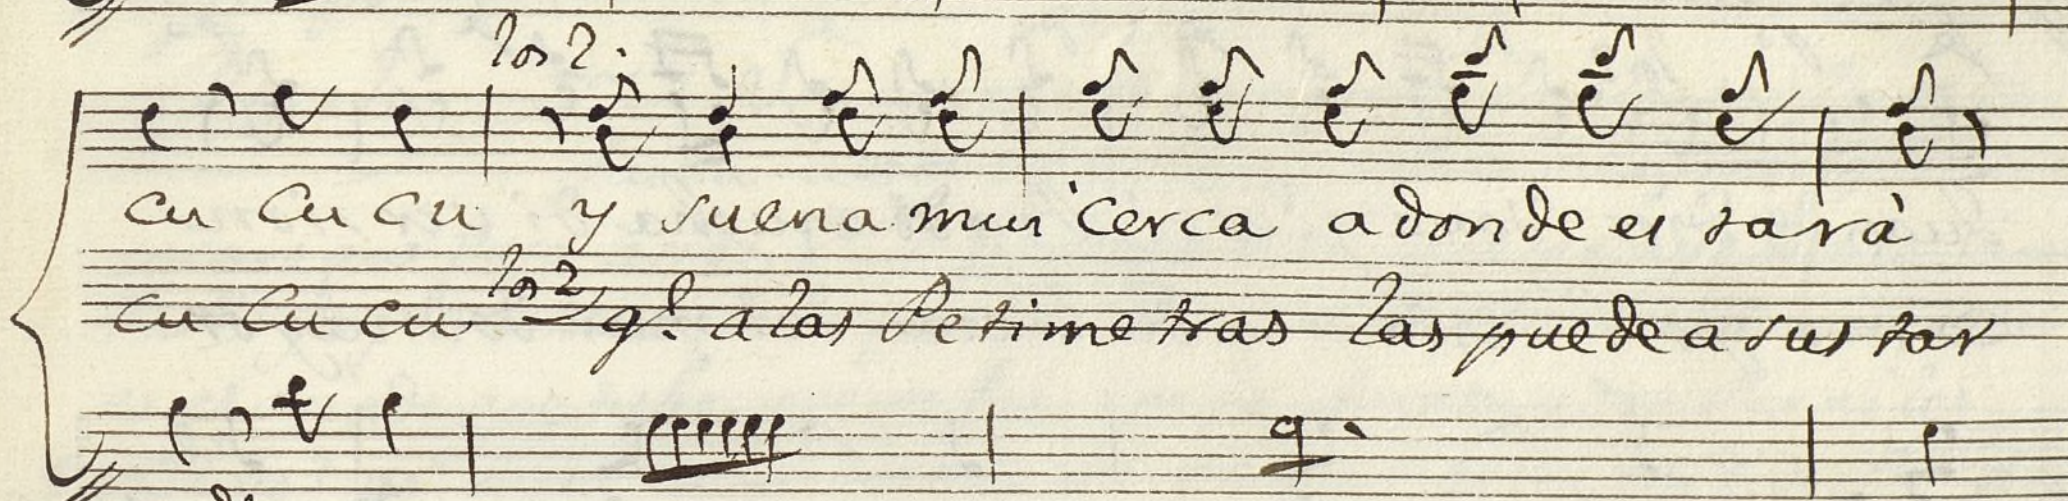 los 2.
cu cu cu y suena mui cerca adonde es tarà
los 2
cu cu cu q.e a las Petimetras las puede a sus tar